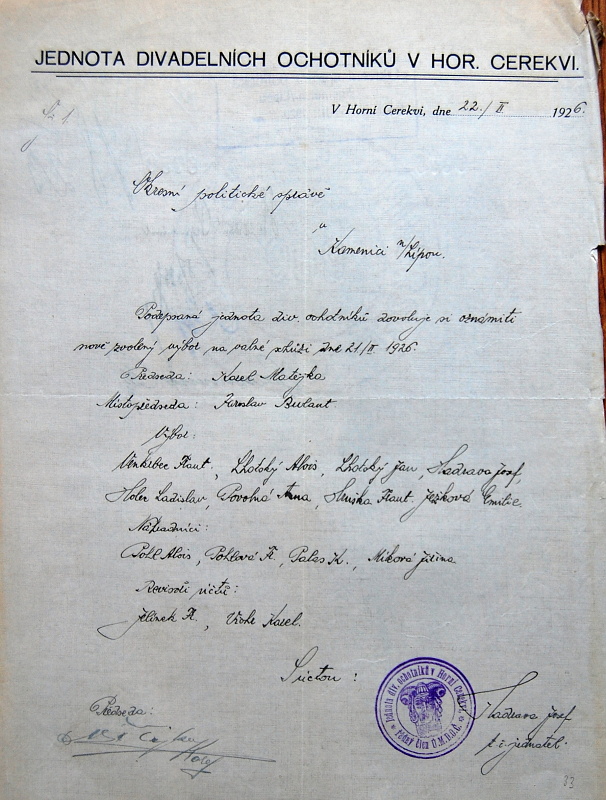 JEDNOTA DIVADELNÍCH OCHOTNÍKŮ V HOR. CEREKVI.
V Horní Cerekvi, dne 22./II. 1926.
Okresní politické správě
v
Kamenici n/Lipou.
Podepsaná jednota div. ochotníků dovoluje si oznámiti
nově zvolený výbor na valné schůzi dne 21/II. 1926.
Předseda: Karel Matějka
Místopředseda: Jaroslav Bulant
Výbor:
Frant., Lhotský Alois, Lhotský Jan, Hadrava Josef,
Ladislav, Povolná Anna, Hruška Frant. Ježková Emilie.
Náhradníci:
Pohl Alois, Pohlová F., Pales K., Miková Jiřina
Revisoři účtů:
Jelínek F., Karel.
S úctou:
Jednota div. ochotníků v Horní Cerekvi
řádný člen Ú.M.D.O.Č.
Předseda:
Hadrava Josef
t.č. jednatel.
33